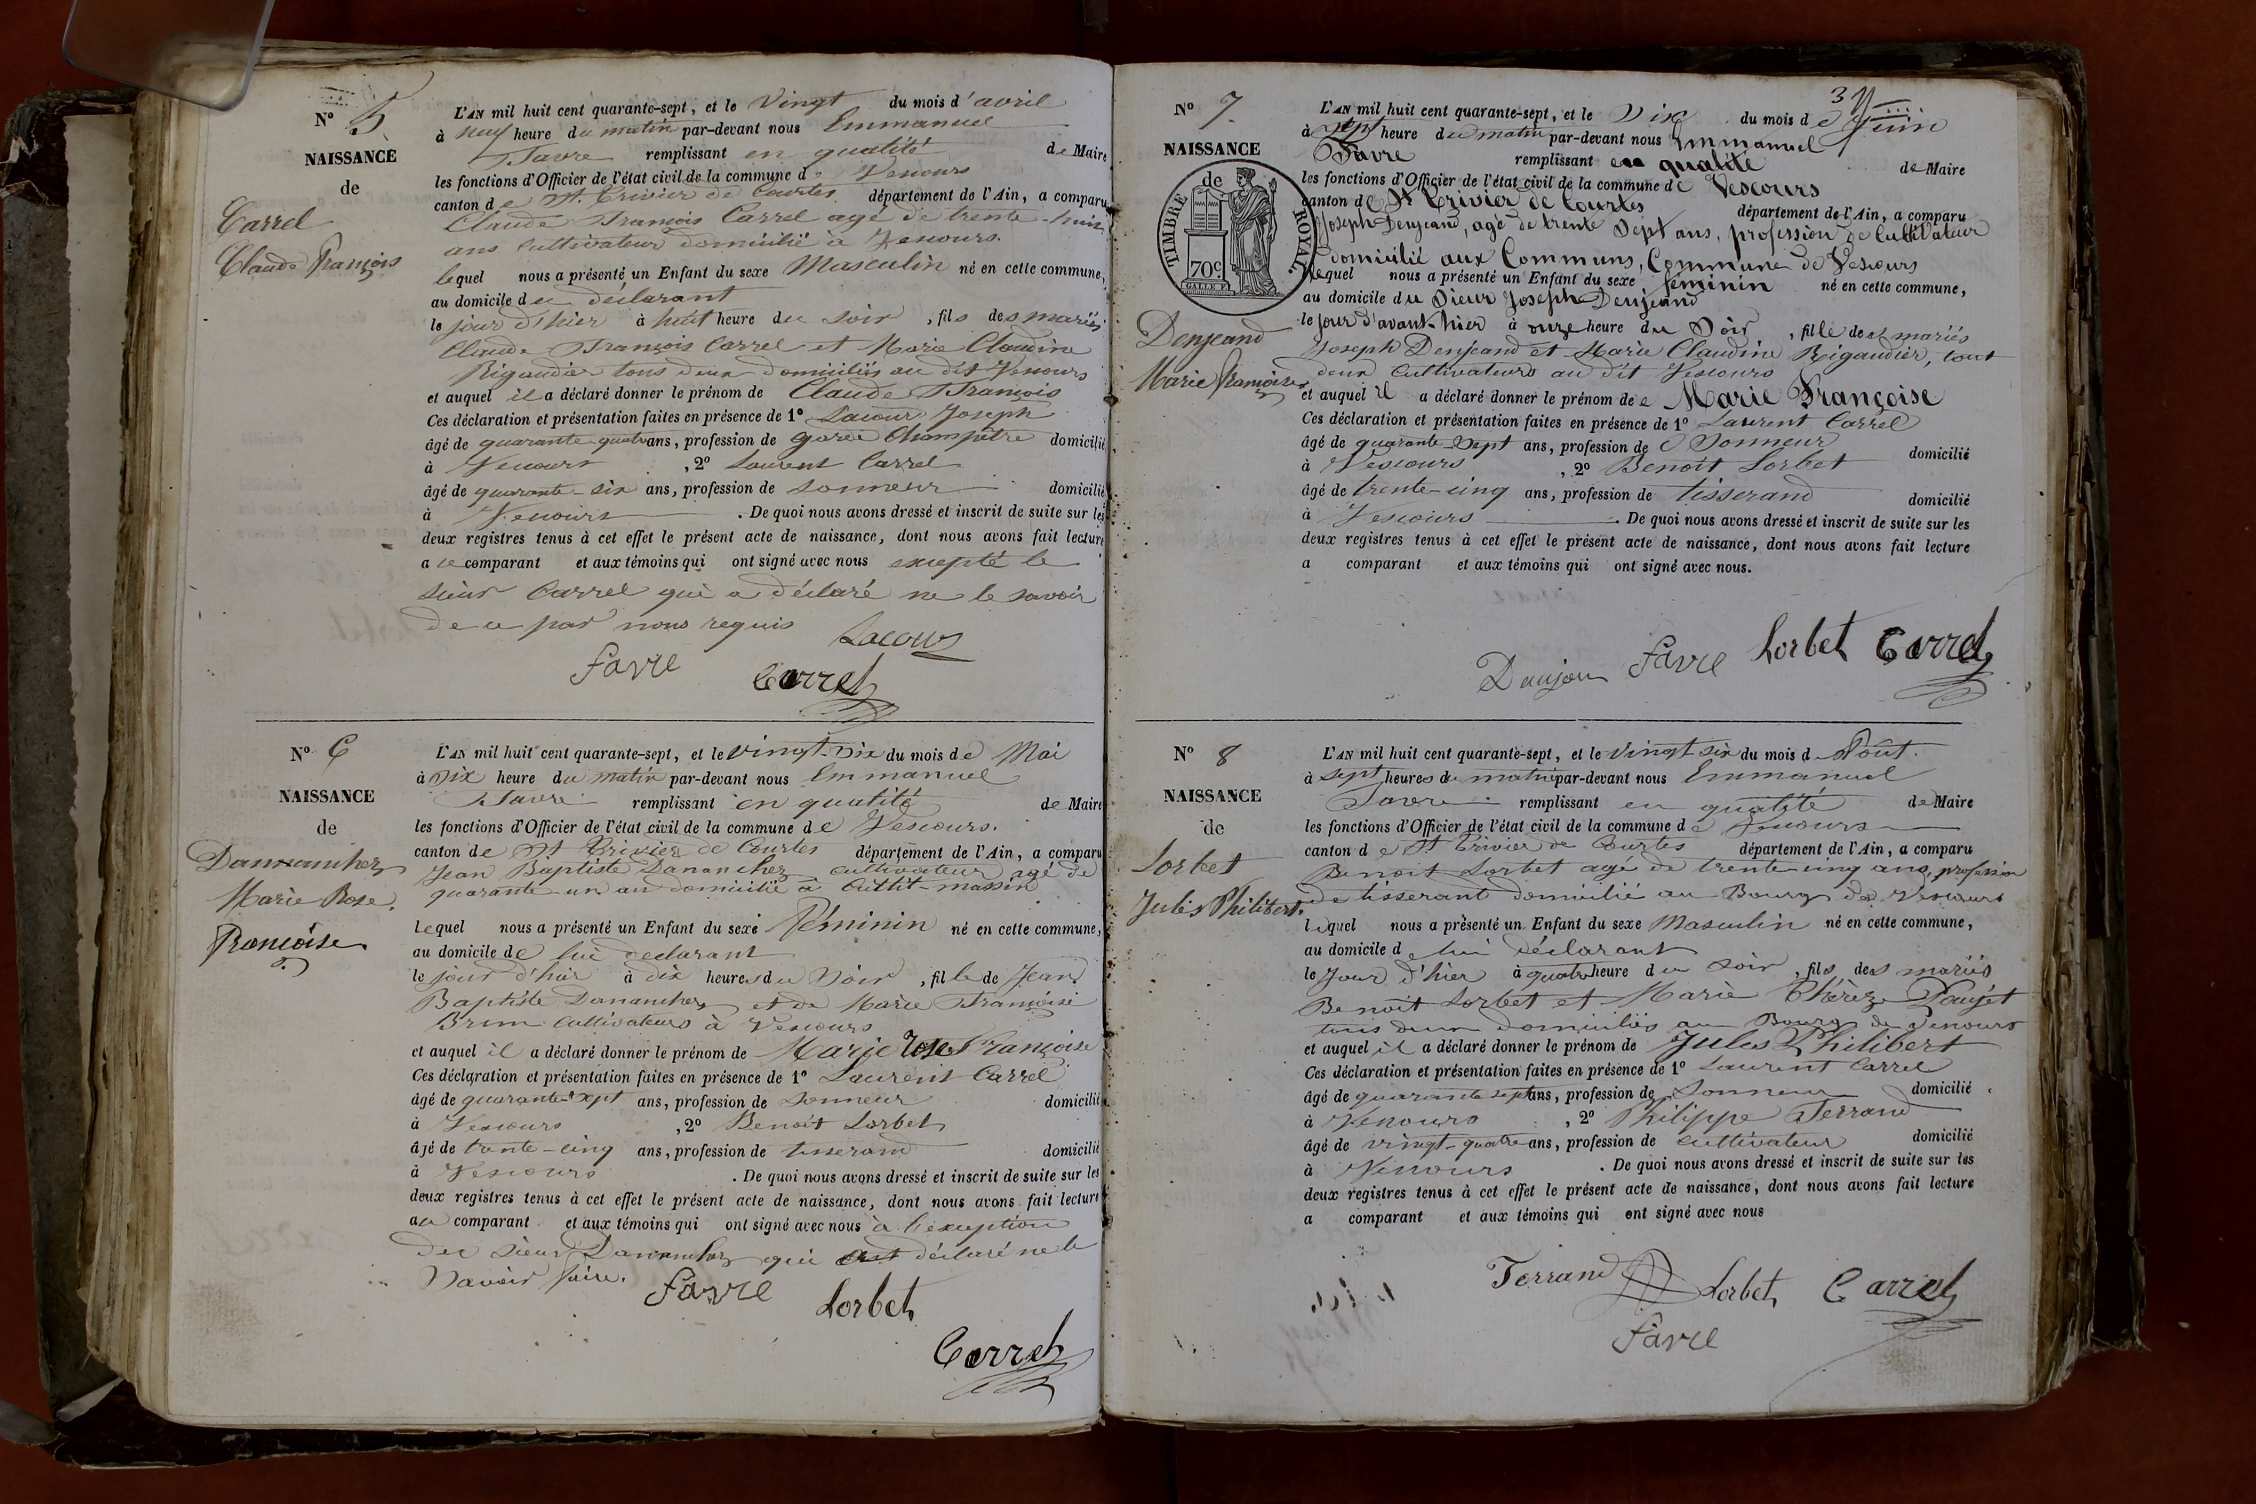 N° 5.
NAISSANCE
de
Carrel
Claude François
L'AN mil huit cent quarante-sept, et le Vingt du mois d'avril
à neuf heure du matin par-devant nous Emmanuel
Favre remplissant en qualité de Maire
les fonctions d'Officier de l'état civil de la commune de Vescours
canton de St. Trivier de Courtes département de l'Ain, a comparu
Claude François Carrel agé de trente-huit
ans Cultivateur domicilié à Vescours.
lequel nous a présenté un Enfant du sexe Masculin né en cette commune,
au domicile du déclarant
le jour d'hier à huit heure du soir, fils des mariés
Claude François Carrel et Marie Claudine
Rigaudier tous deux domiciliés au dit Vescours
et auquel il a déclaré donner le prénom de Claude François
Ces déclaration et présentation faites en présence de 1° Lacour Joseph
âgé de quarante quatre ans, profession de garde Champêtre domicilié
à Vescours, 2° Laurent Carrel
âgé de quarante-six ans, profession de sonneur domicilié
à Vescours. De quoi nous avons dressé et inscrit de suite sur les
deux registres tenus à cet effet le présent acte de naissance, dont nous avons fait lecture
a ce comparant et aux témoins qui ont signé avec nous excepté le
sieur Carrel qui a déclaré ne le savoir
de ce par nous requis
Lacour
Favre Carrel
N° 6
NAISSANCE
de
Dananchez
Marie Rose.
Françoise
L'AN mil huit cent quarante-sept, et le vingt-dix du mois de Mai
à dix heure du matin par-devant nous Emmanuel
Favre remplissant en qualité de Maire
les fonctions d'Officier de l'état civil de la commune de Vescours.
canton de St Trivier de Courtes département de l'Ain, a comparu
Jean Baptiste Dananchez cultivateur agé de
quarante un an domicilié à
lequel nous a présenté un Enfant du sexe Féminin né en cette commune,
au domicile de lui declarant
le jour d'hier à dix heures du soir, fille de Jean
Baptiste Dananchez et de Marie Françoise
Brun Cultivateurs à Vescours
et auquel il a déclaré donner le prénom de Marie Rose Françoise
Ces déclaration et présentation faites en présence de 1° Laurent Carrel
âgé de quarante-sept ans, profession de Sonneur domicilié
à Vescours, 2° Benoît Lorbet
âgé de trente-cinq ans, profession de tisserand domicilié
à Vescours. De quoi nous avons dressé et inscrit de suite sur les
deux registres tenus à cet effet le présent acte de naissance, dont nous avons fait lecture
au comparant et aux témoins qui ont signé avec nous à l'exception
du sieur Dananchez qui a déclaré ne le
savoir faire.
Favre Lorbet
Carrel
3
N° 7.
NAISSANCE
de
TIMBRE ROYAL.
70c.
Denjeand
Marie françoise
L'AN mil huit cent quarante-sept, et le Dix du mois de Juin
à sept heure du matin par-devant nous Emmanuel
Favre remplissant en qualité de Maire
les fonctions d'Officier de l'état civil de la commune de Vescours
canton de St Trivier de Courtes département de l'Ain, a comparu
Joseph Denjeand, agé de trente sept ans, profession de Cultivateur
domicilié aux Communs, Commune de Vescours
lequel nous a présenté un Enfant du sexe féminin né en cette commune,
au domicile du Sieur Joseph Denjeand
le jour d'avant-hier à onze heure du Soir, fille des mariés
Joseph Denjeand et Marie Claudine Rigaudier, tout
deux Cultivateurs au dit Vescours
et auquel il a déclaré donner le prénom de Marie Françoise
Ces déclaration et présentation faites en présence de 1° Laurent Carrel
âgé de quarante-sept ans, profession de Sonneur domicilié
à Vescours, 2° Benoît Lorbet
âgé de trente-cinq ans, profession de tisserand domicilié
à Vescours. De quoi nous avons dressé et inscrit de suite sur les
deux registres tenus à cet effet le présent acte de naissance, dont nous avons fait lecture
a comparant et aux témoins qui ont signé avec nous.
Danjean Favre Lorbet Carrel
N° 8
NAISSANCE
de
Lorbet
Jules Philibert.
L'AN mil huit cent quarante-sept, et le vingt six du mois d'Août.
à sept heures du matin par-devant nous Emmanuel
Favre remplissant en qualité de Maire
les fonctions d'Officier de l'état civil de la commune de Vescours
canton de St Trivier de Courtes département de l'Ain, a comparu
Benoit Lorbet agé de trente-cinq ans, profession
de tisserant domicilié au Bourg de Vescours
lequel nous a présenté un Enfant du sexe Masculin né en cette commune,
au domicile de lui déclarant
le Jour d'hier à quatre heure du soir, fils des mariés
Benoît Lorbet et Marie Thérèze Paujet
tous deux domiciliés au Bourg de Vescours
et auquel il a déclaré donner le prénom de Jules Philibert
Ces déclaration et présentation faites en présence de 1° Laurent Carrel
âgé de quarante sept ans, profession de Sonneur domicilié
à Vescours, 2° Philippe Ferrand
âgé de vingt-quatre ans, profession de cultivateur domicilié
à Vescours. De quoi nous avons dressé et inscrit de suite sur les
deux registres tenus à cet effet le présent acte de naissance, dont nous avons fait lecture
a comparant et aux témoins qui ont signé avec nous
Ferrand Lorbet Carrel
Favre